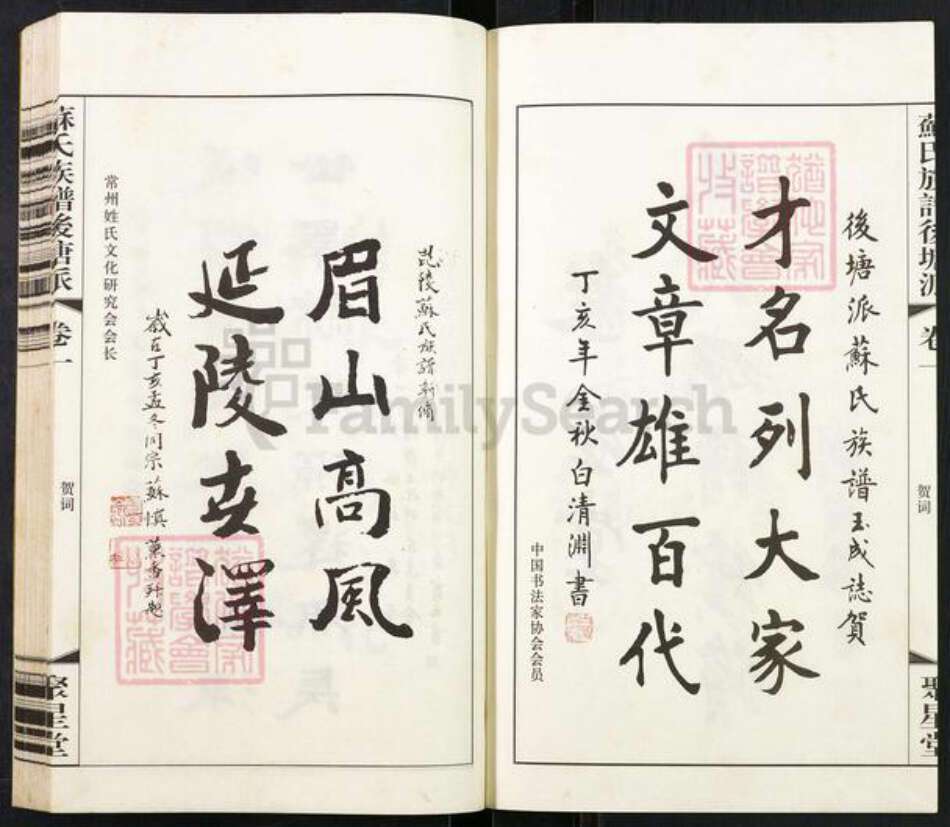 蘇氏族譜後塘派
卷一
贺词
聚星堂
後塘派蘇氏族谱玉成誌賀
才名列大家
文章雄百代
丁亥年金秋白清淵書
中国书法家协会会员
毗陵蘇氏族譜新修
眉山高风
延陵世澤
歲在丁亥孟冬同宗蘇慎
常州姓氏文化研究会会长
蘇氏族譜後塘派
卷一
贺词
聚星堂
FamilySearch